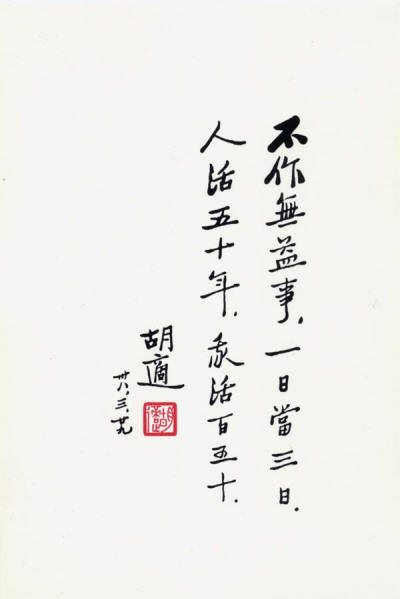 不作無益事．一日當三日．
人活五十年．我活百五十．
胡適
卅八．三．廿九